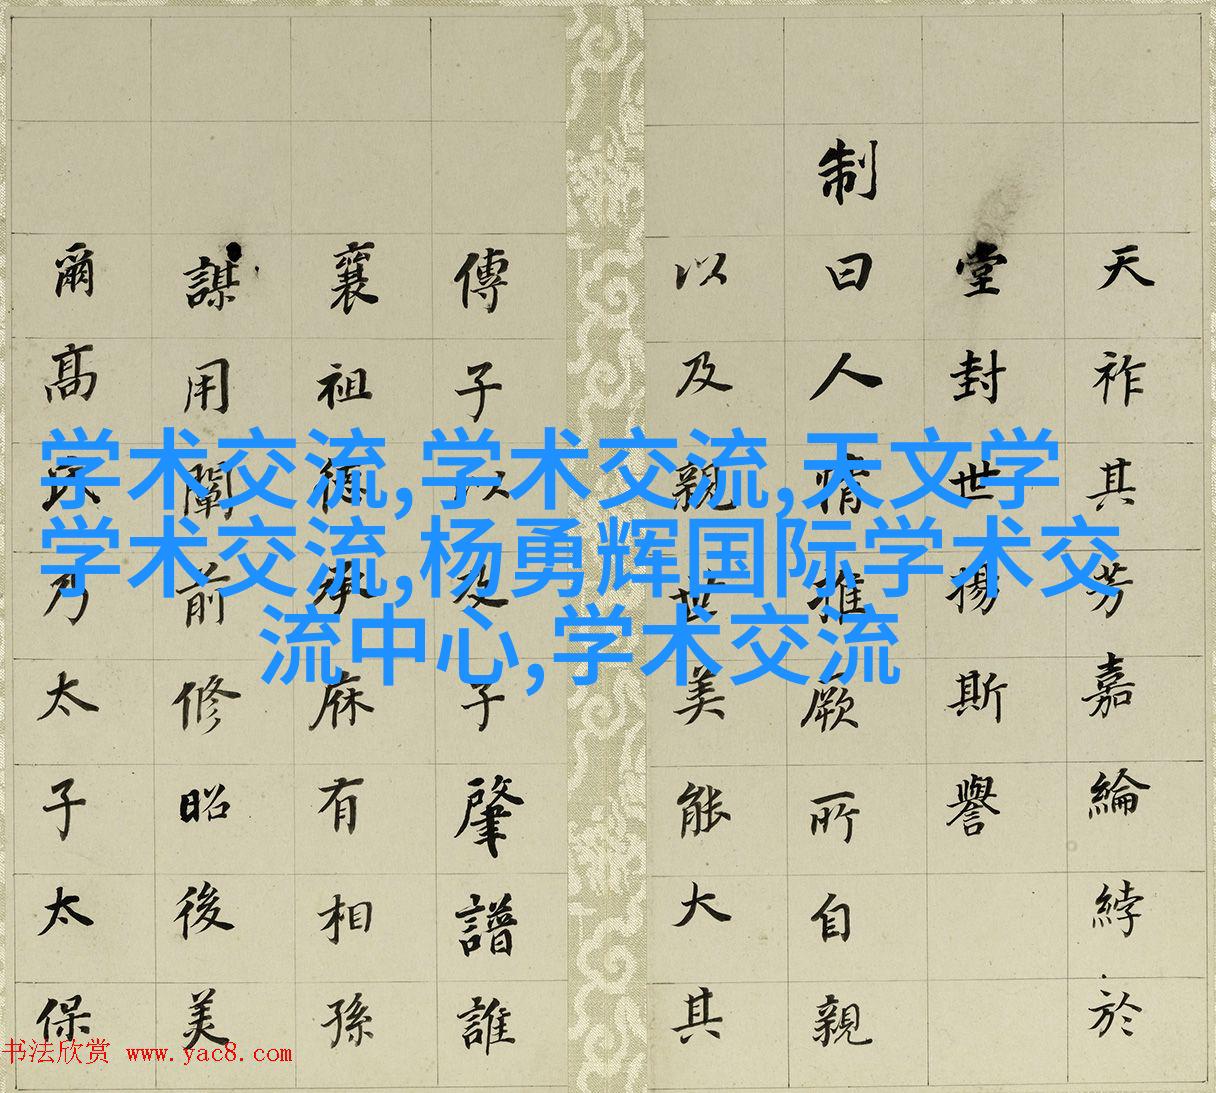 天祚其芳嘉綸綍於
堂封世揚斯譽
制曰人情推厥所自親
以及親世美能大其
傳子以及子肇譜誰
襄祖德承庥有相孫
謀用闡前修昭後美
爾高乃太子太保
学术交流,学术交流,天文学
学术交流,杨勇辉国际学术交
流中心,学术交流
书法欣赏 www.yac8.com